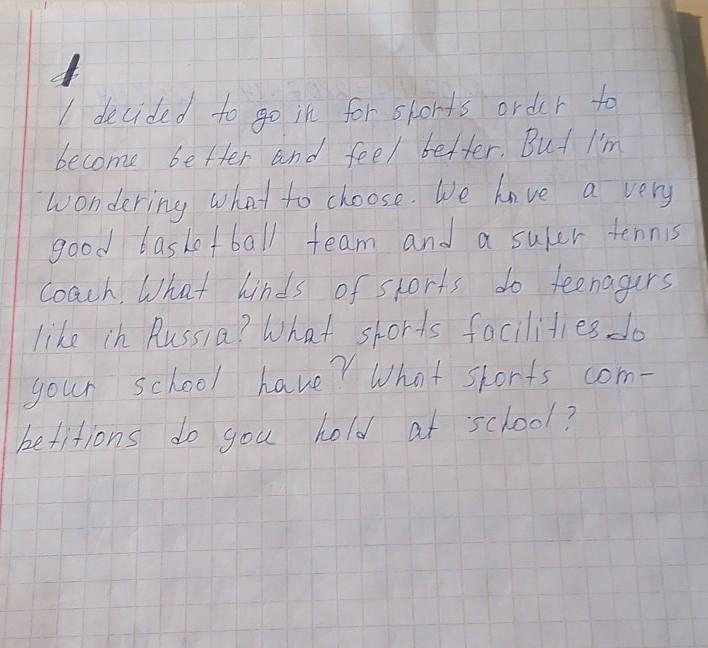 1
I decided to go in for sports order to
become better and feel better. But I'm
wondering what to choose. We have a very
good basketball team and a super tennis
coach. What kinds of sports do teenagers
like in Russia? What sports facilities do
your school have? What sports com-
petitions do you hold at school?